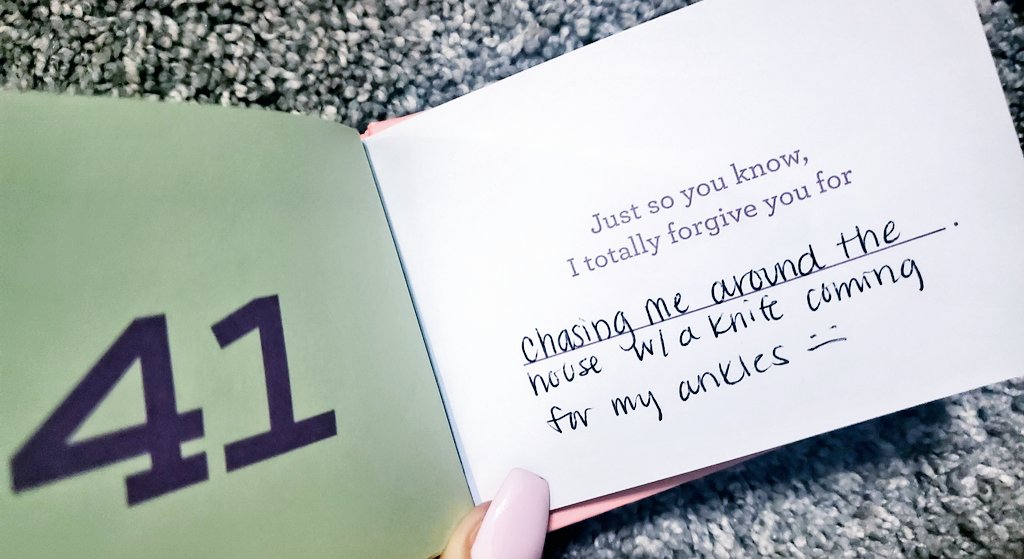 41
Just so you know,
I totally forgive you for
chasing me around the.
house w/ a knife coming
for my ankles :)